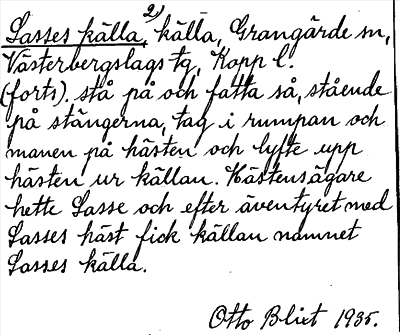 2)
Lasses källa, källa, Grangärde sn,
Västerbergslags tg, Kopp l.
(forts). stå på och fatta så, stående
på stängerna, tag i rumpan och
manen på hästen och lyfte upp
hästen ur källan. Hästens ägare
hette Lasse och efter äventyret med
Lasses häst fick källan namnet
Lasses källa.
Otto Blixt 1935.